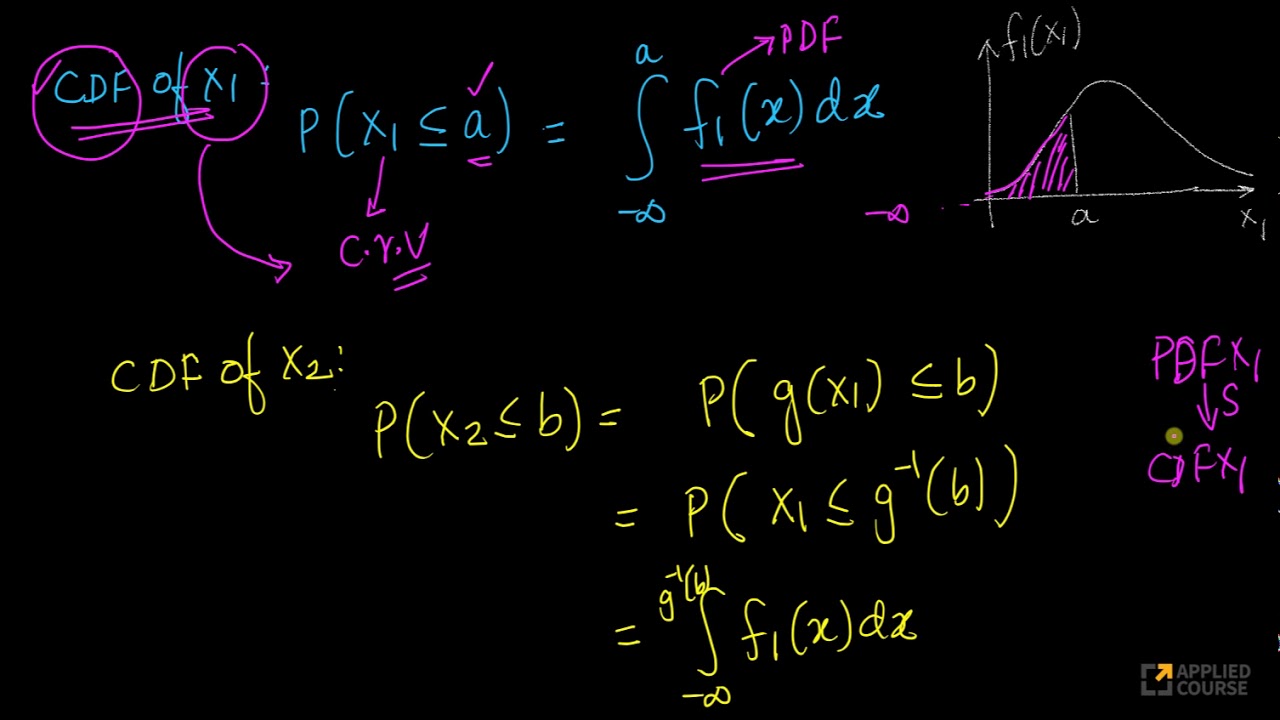 CDF of X₁:
P(X₁ ≤ a) = ∫_{-∞}^{a} f₁(x) dx
PDF
C.r.V
f₁(x₁)
-∞
a
x₁
CDF of X₂:
P(X₂ ≤ b) = P(g(X₁) ≤ b)
= P(X₁ ≤ g⁻¹(b))
= ∫_{-∞}^{g⁻¹(b)} f₁(x) dx
PDF X₁
↓ S
CDF X₁
APPLIED
COURSE